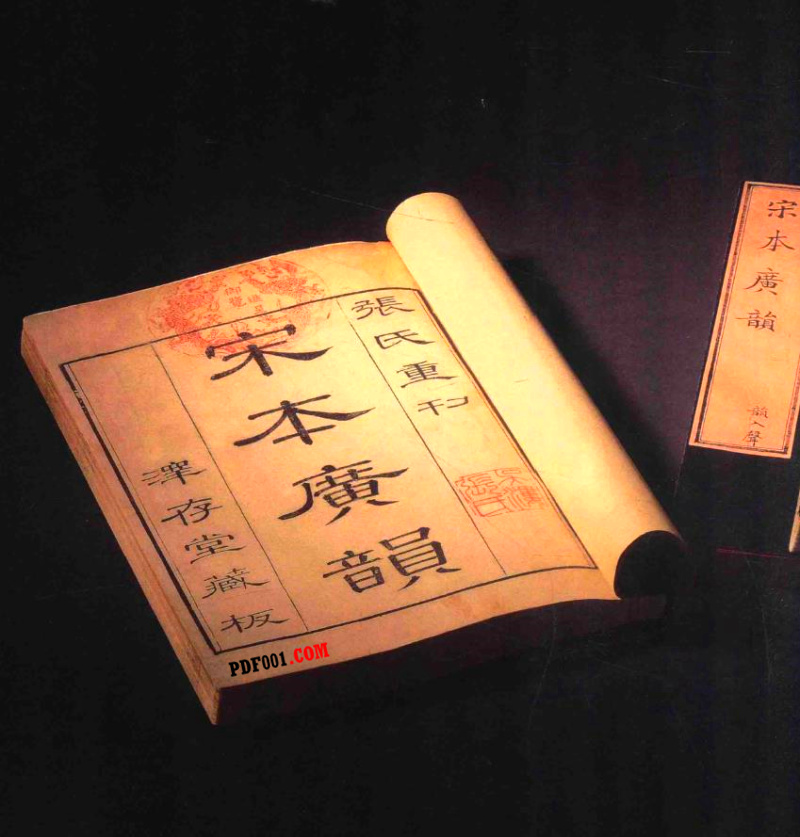 張氏重刊
宋本廣韻
澤存堂藏板
PDF001.COM
宋本廣韻
韻入聲